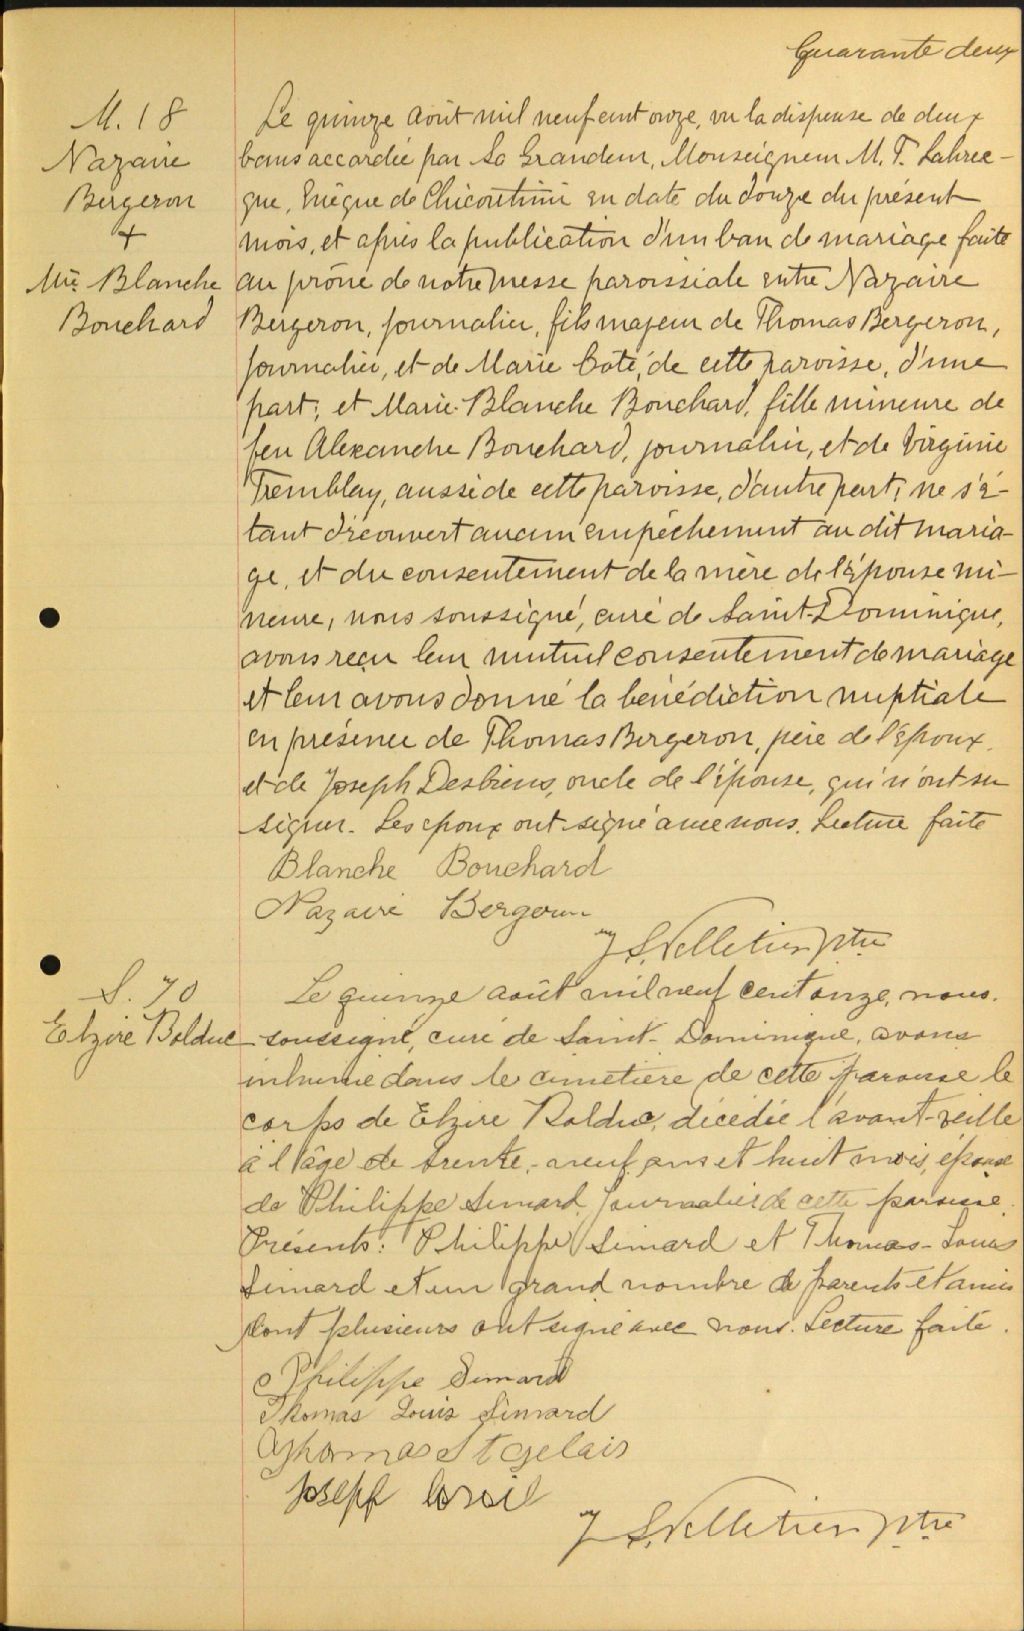 Quarante deux
M. 18
Nazaire
Bergeron
+
Mie Blanche
Bouchard
Le quinze août mil neuf cent onze, vu la dispense de deux
bans accordée par Sa Grandeur, Monseigneur M. T. Labrec-
que, Evêque de Chicoutimi en date du douze du présent
mois, et après la publication d'un ban de mariage faite
au prône de notre messe paroissiale entre Nazaire
Bergeron, journalier, fils majeur de Thomas Bergeron,
journalier, et de Marie Coté, de cette paroisse, d'une
part; et Marie-Blanche Bouchard, fille mineure de
feu Alexandre Bouchard, journalier, et de Virginie
Tremblay, aussi de cette paroisse, d'autre part; ne s'é-
tant découvert aucun empêchement au dit maria-
ge, et du consentement de la mère de l'épouse mi-
neure, nous soussigné, curé de Saint-Dominique,
avons reçu leur mutuel consentement de mariage
et leur avons donné la bénédiction nuptiale
en présence de Thomas Bergeron, père de l'époux,
et de Joseph Desbiens, oncle de l'épouse, qui n'ont su
signer. Les époux ont signé avec nous. Lecture faite
Blanche Bouchard
Nazaire Bergeron
J S. Pelletier Ptre
S. 70
Elzire Bolduc
Le quinze août mil neuf cent onze, nous
soussigné, curé de Saint-Dominique, avons
inhumé dans le cimetière de cette paroisse le
corps de Elzire Bolduc, décédée l'avant-veille
à l'âge de trente-neuf ans et huit mois, épouse
de Philippe Simard, journalier de cette paroisse.
Présents: Philippe Simard et Thomas-Louis
Simard et un grand nombre de parents et amis
dont plusieurs ont signé avec nous. Lecture faite.
Philippe Simard
Thomas Louis Simard
Thomas St gelais
Joseph
J S. Pelletier Ptre